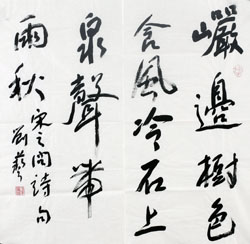 巗邊樹色
含風冷石上
泉聲帶
雨秋宋之问詩句
劉藝